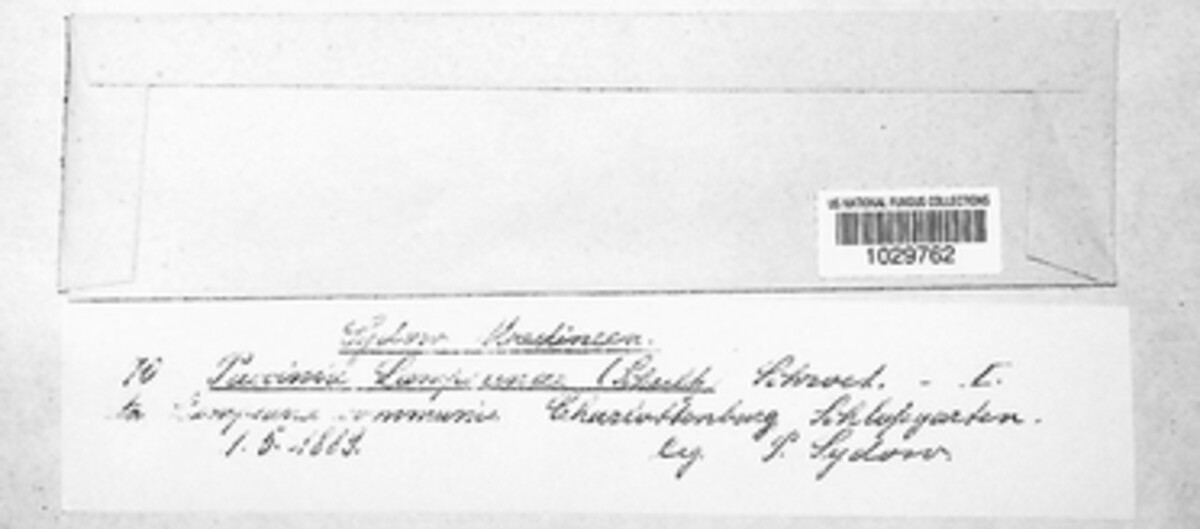 US NATIONAL FUNGUS COLLECTIONS
1029762
Sydow Uredineen.
70 Puccinia Lampsanae (Schultz) Schroet. - I.
Lampsana communis Charlottenburg Schloßgarten.
1.5. leg. P. Sydow.